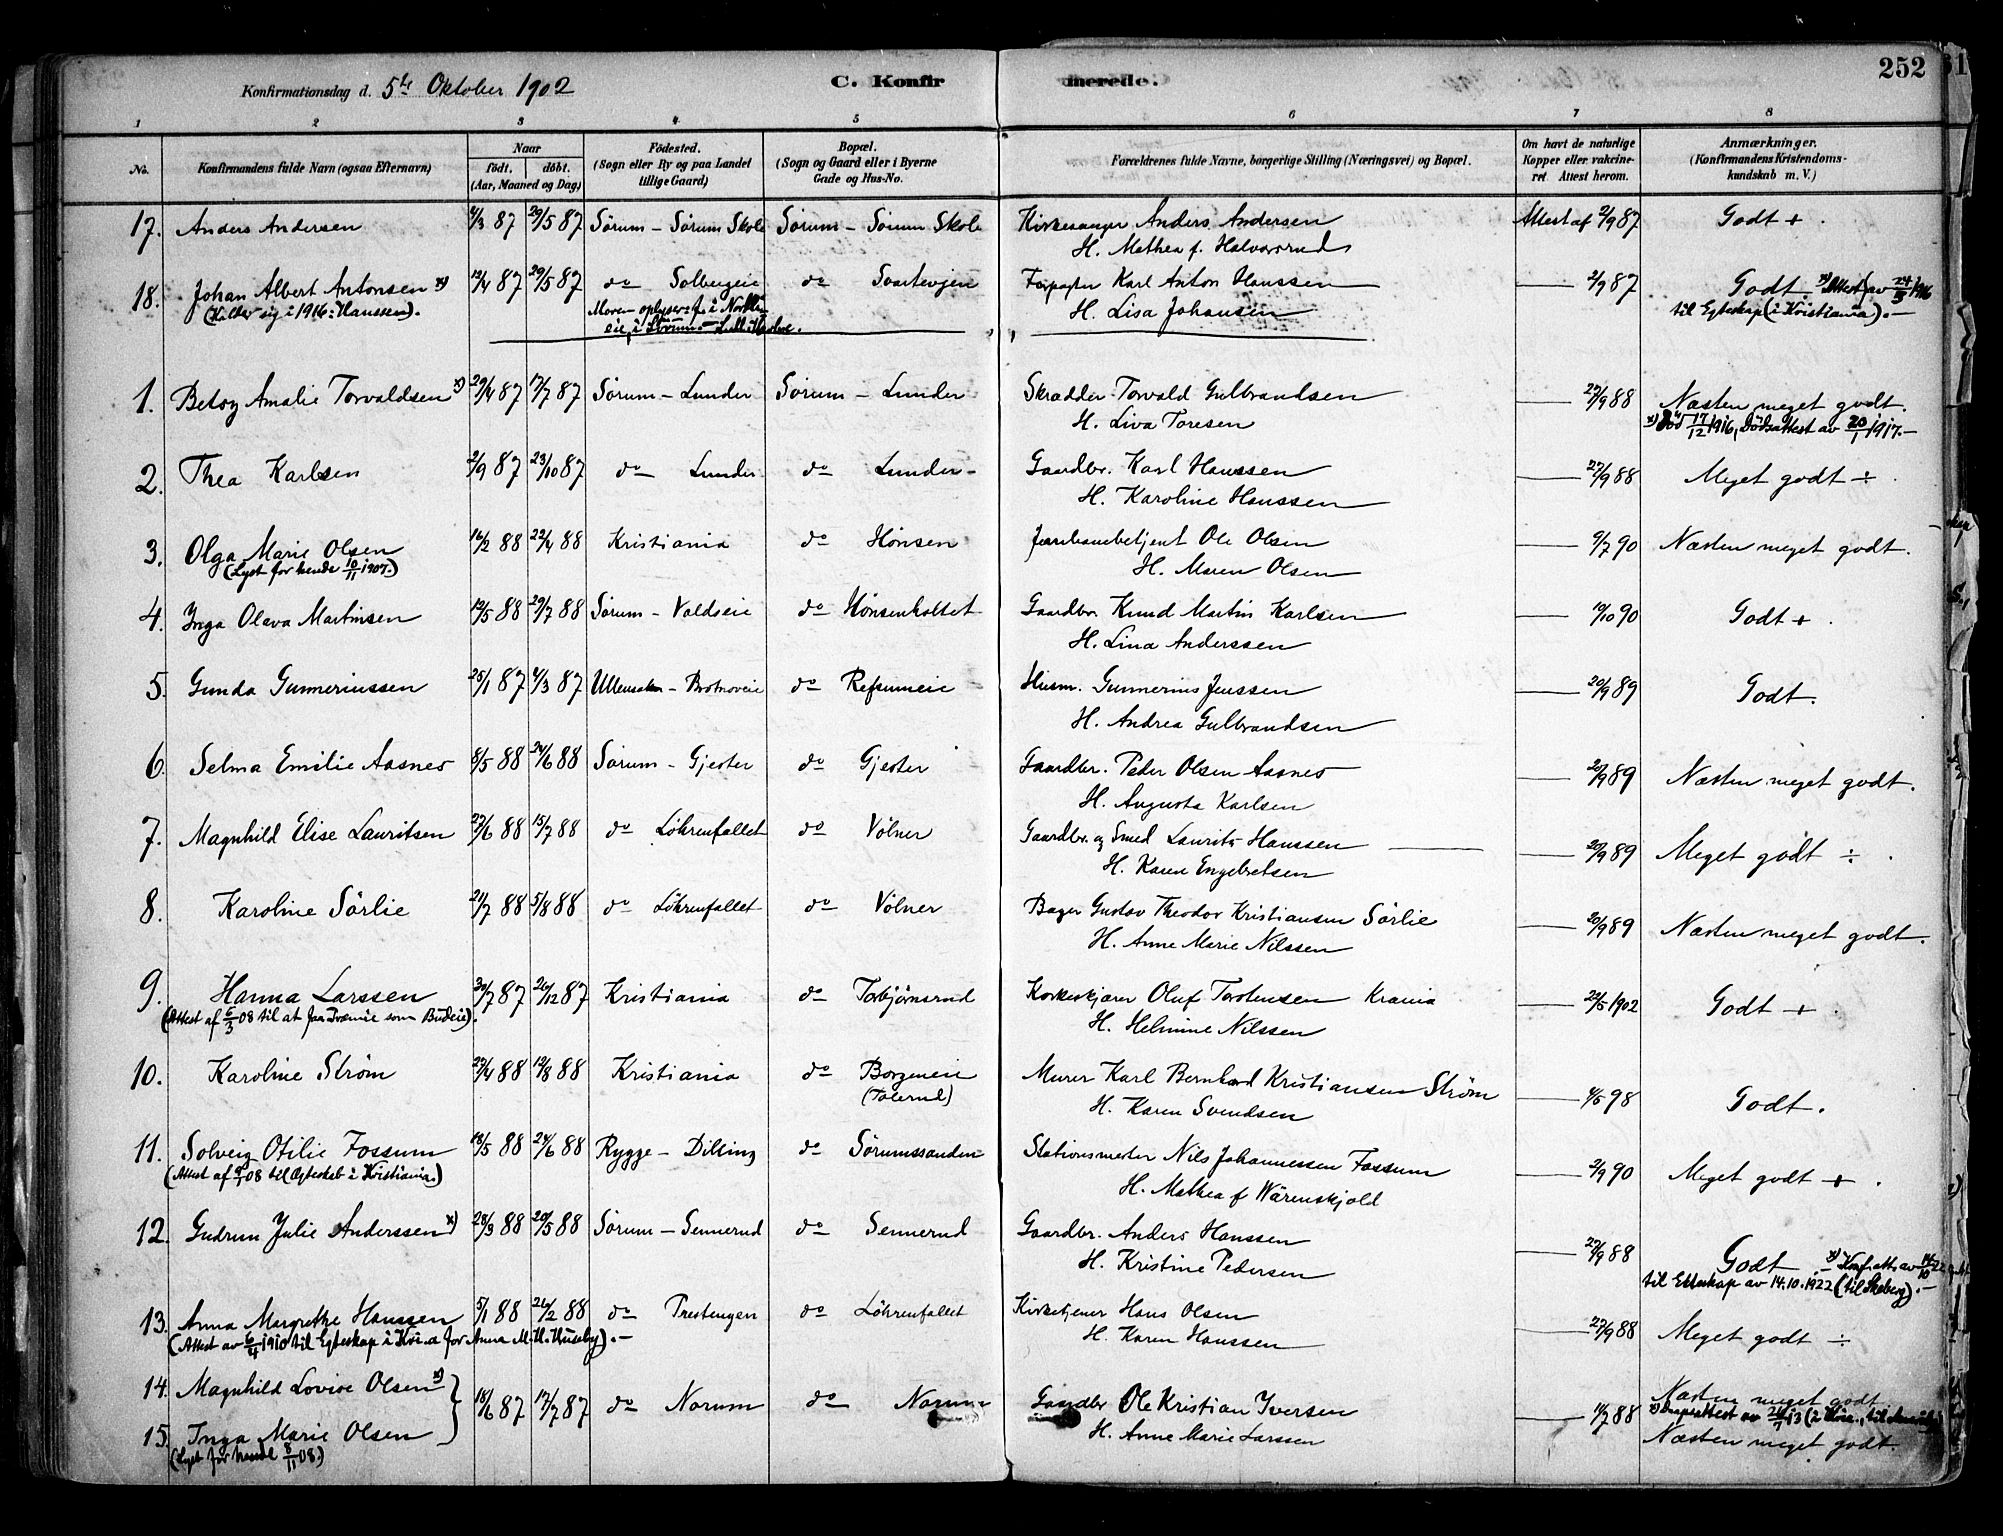 252
Konfirmationsdag d. 5te Oktober 1902 C. Konfirmerede.
1 2 3 4 5 6 7 8
No. Konfirmandens fulde Navn (ogsaa Efternavn) Naar født. døbt. (Aar, Maaned og Dag) Fødested. (Sogn eller By og paa Landet tillige Gaard) Bopæl. (Sogn og Gaard eller i Byerne Gade og Hus-No. Forældrenes fulde Navne, borgerlige Stilling (Næringsvei) og Bopæl. Om havt de naturlige Kopper eller vakcineret. Attest herom. Anmærkninger. (Konfirmandens Kristendomskundskab m. V.)
17. Anders Andersen 87 29/5 87 Sørum – Sørum Skole Sørum – Sørum Skole Kirkesanger Anders Andersen Attest af 2/9 87 Godt +
H. Mathea f. Halvorsrud
18. Johan Albert Antonsen x) 12/4 87 29/5 87 do Solbergeie do Svartevjen Karl Anton Hanssen 2/9 87 Godt x) Attest av 24/5 1916
(Kalder sig i 1916: Hanssen). Moren oplyser: f. i H. Lisa Johansen til Egteskap (i Kristiania).–
eie, i Sørum.–
1. Betsy Amalie Torvaldsen x) 29/4 87 17/7 87 Sørum – Lunder Sørum – Lunder Skrædder Torvald Gulbrandsen 27/9 88 Næsten meget godt.
H. Liva Toresen x) Død 17/12 1916, Dødsattest av 20/1 1917.–
2. Thea Karlsen 2/9 87 23/10 87 do Lunder do Lunder – Gaardbr. Karl Hanssen 27/9 88 Meget godt ÷
H. Karoline Hanssen
3. Olga Marie Olsen 16/2 88 22/4 88 Kristiania do Hønsen Jernbanebetjent Ole Olsen 9/7 90 Næsten meget godt.
(Lyst for hende 10/11 1907.) H. Maren Olsen
4. Inga Olava Martinsen 12/5 88 29/7 88 Sørum – Valdseie do Hønsenholtet Gaardbr Knud Martin Karlsen 90 Godt +
H. Lina Anderssen
5. Gunda Gunneriussen 25/1 87 87 Ullensaker – do Refsumeie Husm. Gunnerius Jenssen 20/9 89 Godt.
H. Andrea Gulbrandsen
6. Selma Emilie Aasnes 8/5 88 24/6 88 Sørum – Gjester do Gjester Gaardbr. Peder Olsen Aasnes 20/9 89 Næsten meget godt.
H. Augusta Karlsen
7. Magnhild Elise Lauritsen 27/6 88 15/7 88 do Løhrenfallet do Vølner Gaardbr. og Smed Laurits Hanssen 20/9 89 Meget godt ÷
H. Karen Engebretsen
8. Karoline Sörlie 21/7 88 5/8 88 do Löhrenfallet do Vølner Bager Gustav Theodor Kristiansen Sörlie 20/9 89 Næsten meget godt.
H. Anne Marie Nilssen
9. Hanna Larssen 30/7 87 26/12 87 Kristiania do Torbjørnsrud Korkeskjærer Oluf Torstensen Krania 22/5 1902 Godt +
(Attest af 6/3 08 til at som Budeie). H. Helmine Nilssen
10. Karoline Strøm 27/4 88 12/8 88 Kristiania do Borgeneie Murer Karl Bernhard Kristiansen Strøm 98 Godt.
H. Karen Svendsen
11. Solveig Otilie Fossum 18/5 88 24/6 88 Rygge – Dilling do Sørumssanden Stationsmester Nils Johannessen Fossum 2/9 90 Meget godt +
(Attest af 08 til Egteskab i Kristiania.) H. Mathea f Wärenskjold
12. Gudrun Julie Anderssen x) 28/3 88 20/5 88 Sørum – Sennerud do Sennerud Gaardbr. Anders Hanssen 27/9 88 Godt x) Konf.att. av 14/10 22
H. Kristine Pedersen til Ekteskap av 14.10.1922 (til Skeberg).–
13. Anna Margrethe Hanssen 5/1 88 26/2 88 do Prestengen do Löhrenfallet Kirketjener Hans Olsen 27/9 88 Meget godt ÷
(Attest av 6/4 1910 til Egteskap i Kr.a for Anna M. H. Huseby).– H. Karen Hanssen
14. Magnhild Lovise Olsen x) Næsten meget godt.
18/6 87 17/7 87 do Norum do Norum Gaardbr Ole Kristian Iversen 88
15. Inga Marie Olsen H. Anne Marie Larssen Næsten meget godt.
(Lyst for hende 8/11 08.)